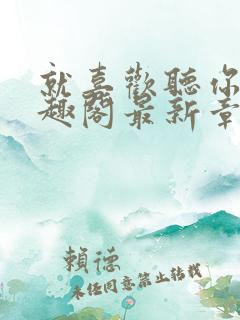 就喜歡聽你
趣閣最新章
賴德
未任同意禁止轉載